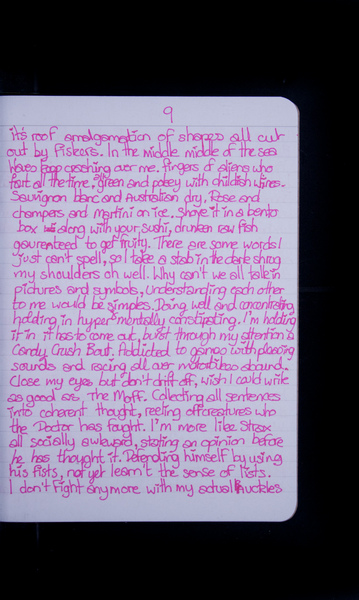 9
it's roof amalgamation of shapes all cut
out by Fiskars. In the middle middle of the sea
waves keep crashing over me. Fingers of aliens who
fart all the time. green and potey with childish wines.
Sauvignon blanc and Australian dry, Rose and
champers and Martini on ice. Shove it in a bento
box along with your sushi, drunken raw fish
gaurenteed to get fruity. There are some words I
just can't spell, so I take a stab in the dark shrug
my shoulders oh well. Why can't we all talk in
pictures and symbols, understanding each other
to me would be simples. Doing well and concentrating
holding in hyper mentally constipating. I'm holding
it in it has to come out, burst through my attention
Candy Crush Bout. Addicted to games with pleasing
sounds and racing all over motorways abound.
Close my eyes but don't drift off, wish I could write
as good as, The Moff. Collecting all sentences
into coherent thought, reeling off creatures who
the Doctor has fought. I'm more like Strax
all socially awkward, stating an opinion before
he has thought it. Defending himself by using
his fists, not yet learn't the sense of lists.
I don't fight anymore with my actual knuckles